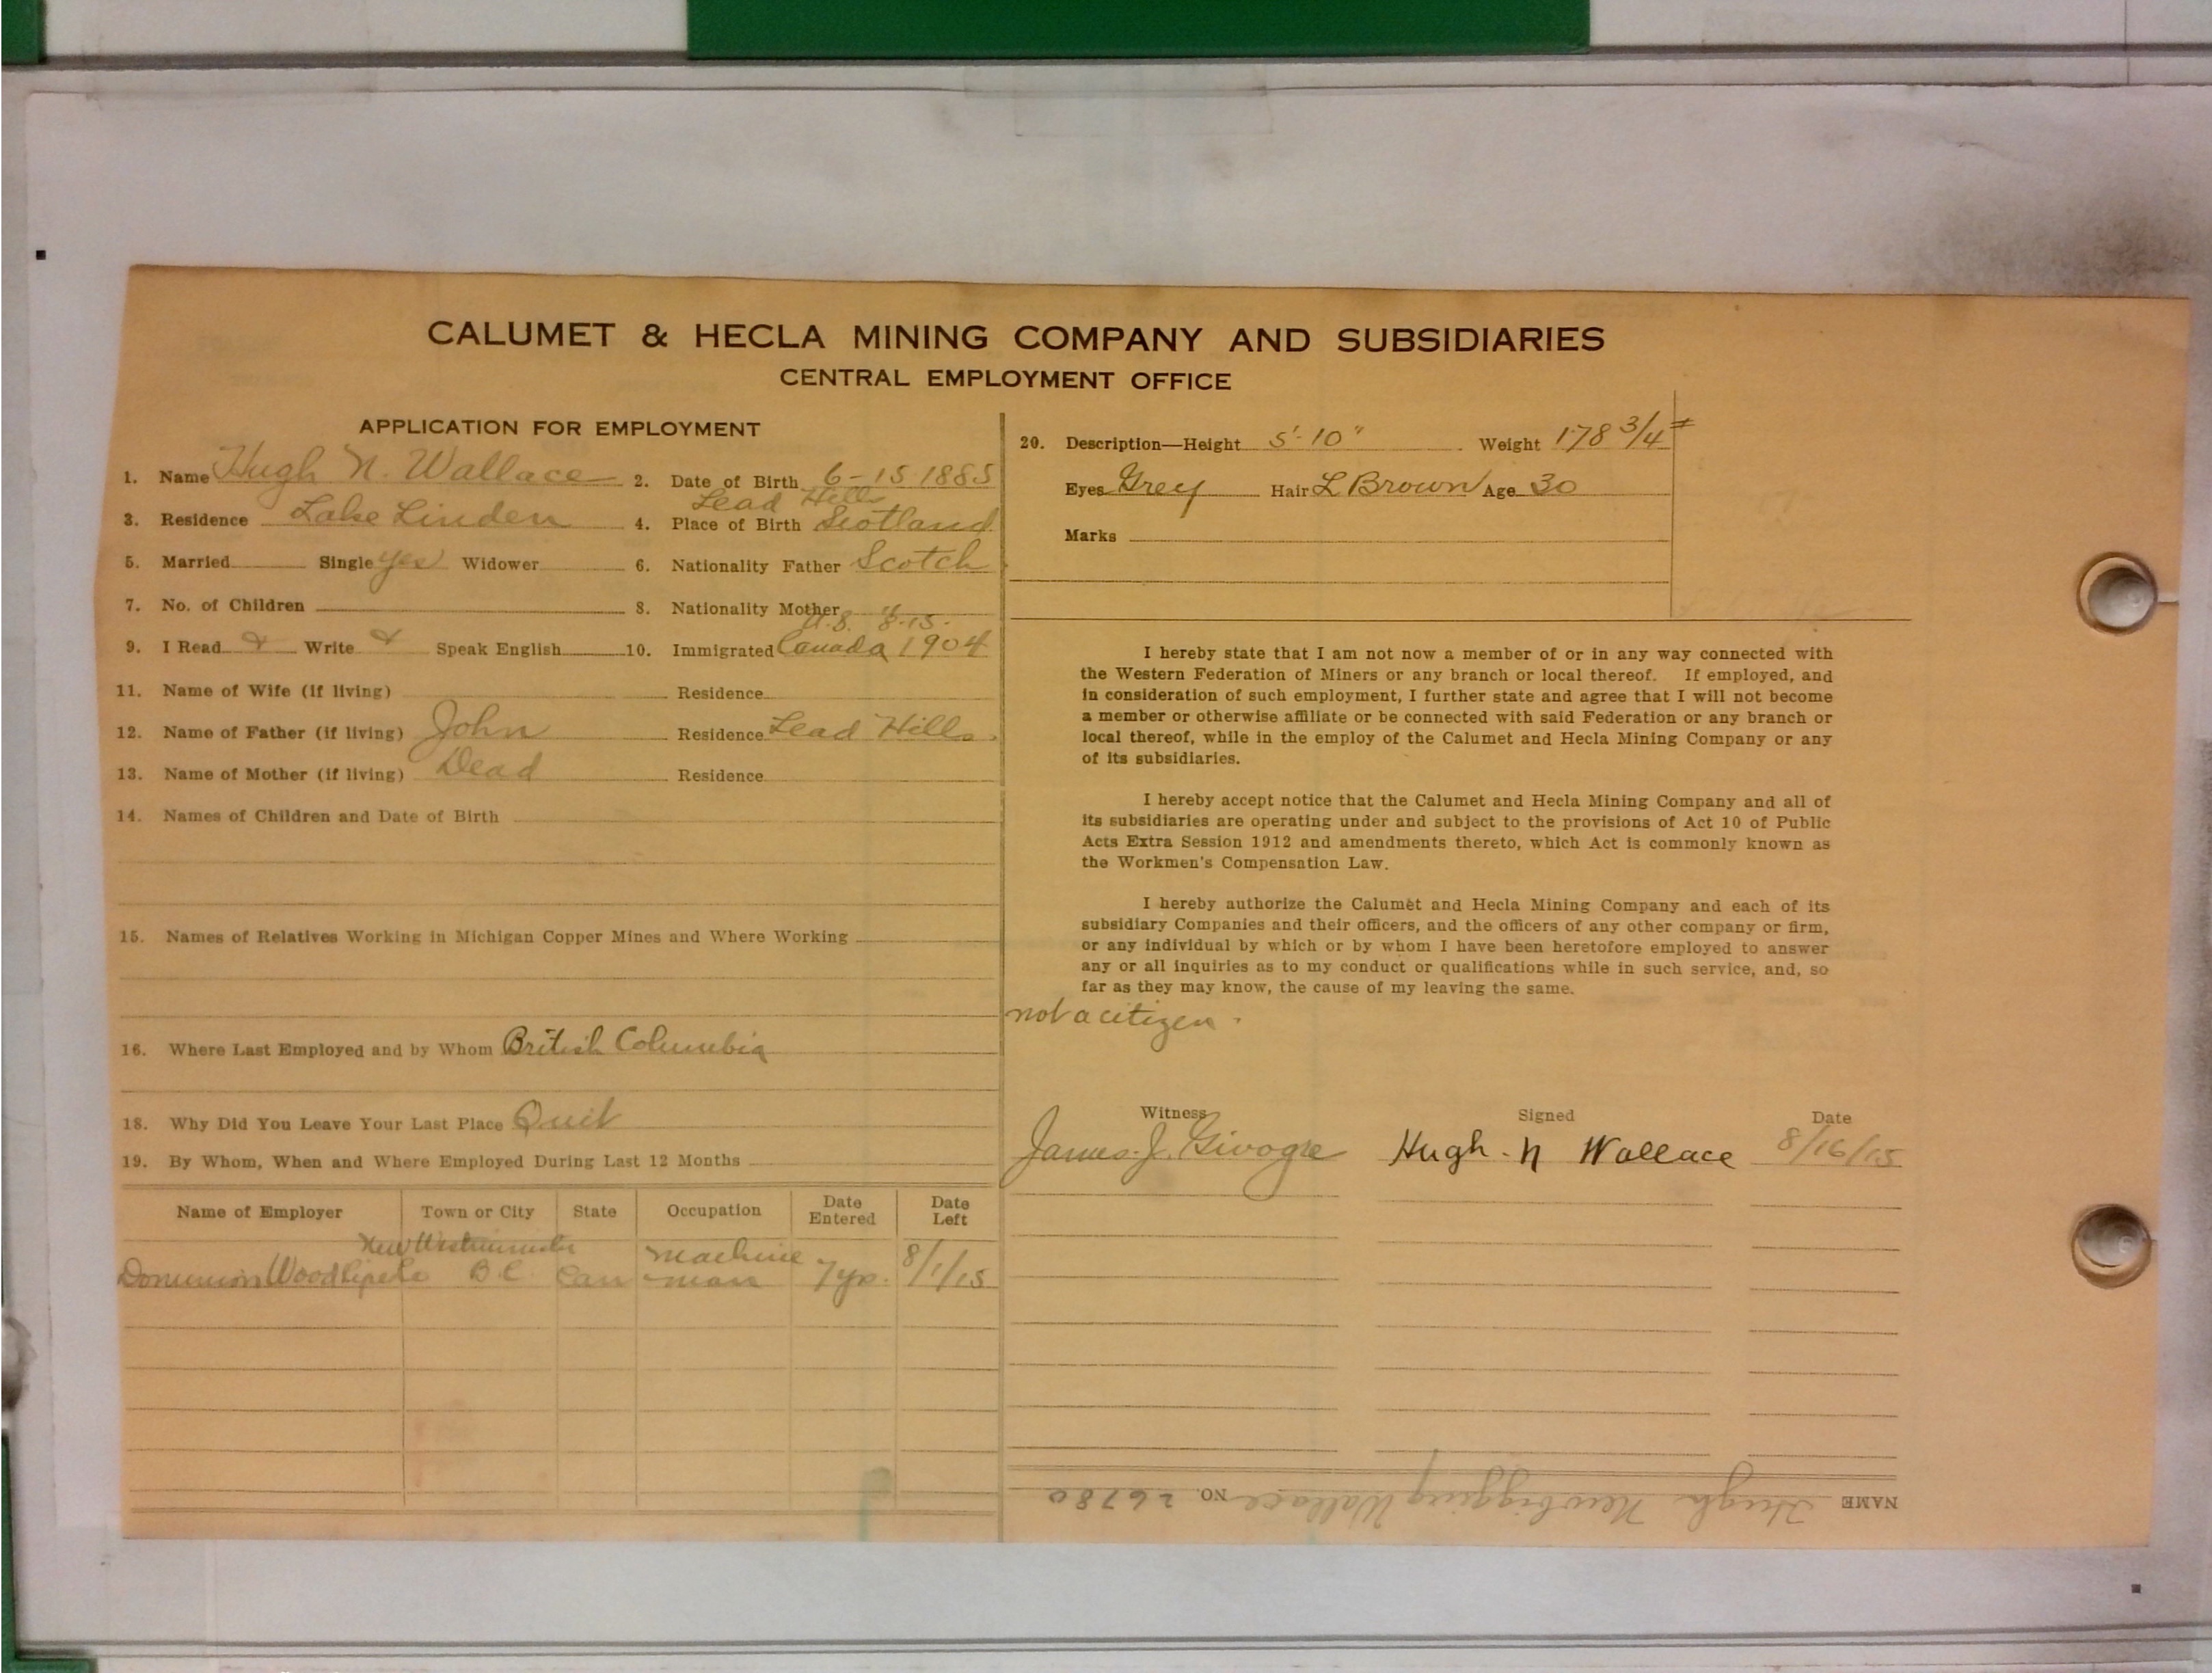 CALUMET & HECLA MINING COMPANY AND SUBSIDIARIES
CENTRAL EMPLOYMENT OFFICE
APPLICATION FOR EMPLOYMENT
1. Name Hugh N. Wallace 2. Date of Birth 6-15-1885
Lead Hills
3. Residence Lake Linden 4. Place of Birth Scotland
5. Married Single yes Widower 6. Nationality Father Scotch
7. No. of Children 8. Nationality Mother "
U.S. 8-15-
9. I Read Write Speak English 10. Immigrated Canada 1904
11. Name of Wife (if living) Residence
12. Name of Father (if living) John Residence Lead Hills.
13. Name of Mother (if living) Dead Residence
14. Names of Children and Date of Birth
15. Names of Relatives Working in Michigan Copper Mines and Where Working
16. Where Last Employed and by Whom British Columbia
18. Why Did You Leave Your Last Place Quit
19. By Whom, When and Where Employed During Last 12 Months
Name of Employer Town or City State Occupation Date Entered Date Left
New Westminster machine
Dominion Wood B.C. Can man 7 yrs. 8/1/15
20. Description—Height 5'-10" Weight 178 3/4 #
Eyes Grey Hair L Brown Age 30
Marks
I hereby state that I am not now a member of or in any way connected with
the Western Federation of Miners or any branch or local thereof. If employed, and
in consideration of such employment, I further state and agree that I will not become
a member or otherwise affiliate or be connected with said Federation or any branch or
local thereof, while in the employ of the Calumet and Hecla Mining Company or any
of its subsidiaries.
I hereby accept notice that the Calumet and Hecla Mining Company and all of
its subsidiaries are operating under and subject to the provisions of Act 10 of Public
Acts Extra Session 1912 and amendments thereto, which Act is commonly known as
the Workmen's Compensation Law.
I hereby authorize the Calumet and Hecla Mining Company and each of its
subsidiary Companies and their officers, and the officers of any other company or firm,
or any individual by which or by whom I have been heretofore employed to answer
any or all inquiries as to my conduct or qualifications while in such service, and, so
far as they may know, the cause of my leaving the same.
not a citizen.
Witness Signed Date
James. J. Hugh. N Wallace 8/16/15
NAME Hugh Newbigging Wallace NO. 26780